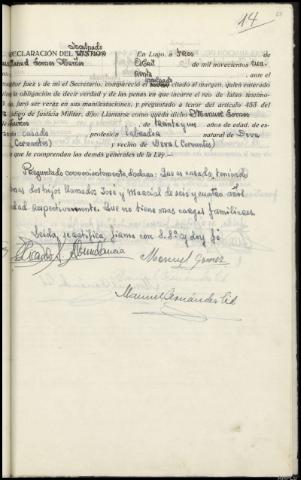 14
Inculpado
DECLARACIÓN DEL TESTIGO En Lugo a tres de
Manuel Gomez Abril de mil novecientos cua-
renta ante el
Juez y de mí el Secretario, compareció el inculpado citado al margen, quien enterado
la obligación de decir verdad y de las penas en que incurre el reo de falso testimo-
juró ser veraz en sus manifestaciones, y preguntado a tenor del artículo 453 del
Código de Justicia Militar, dijo: Llamarse como queda dicho Manuel Gomez
de treinta y años de edad, de es-
casado profesión labrador natural de
(Cervantes) y vecino de Vera (Cervantes)
que le comprenden las demás generales de la Ley.—
Preguntado convenientemente declara: Que es casado teniendo
dos hijos llamados José y Marcial de seis y cuatro años
edad respectivamente. Que no tiene mas cargas familiares
Leida, se ratifica, firma con S.Sª y doy fé
Abundancia Manuel Gomez
Manuel Fernandez Cid